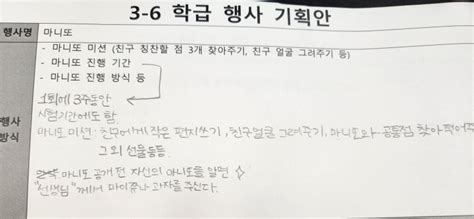 3-6 학급 행사 기획안
행사명 마니또
- 마니또 미션 (친구 칭찬할 점 3개 찾아주기, 친구 얼굴 그려주기 등)
- 마니또 진행 기간
- 마니또 진행 방식 등
1회에 3주동안
시험기간에도 함.
행사 방식
마니또 미션 : 친구에게 작은 편지쓰기, 친구얼굴 그려주기, 마니또와 공통점 찾아 적어주기
그외 선물 등등
마니또 공개 전 자신의 마니또을 알면
"선생님"께서 마이쮸나 과자를 주신다.